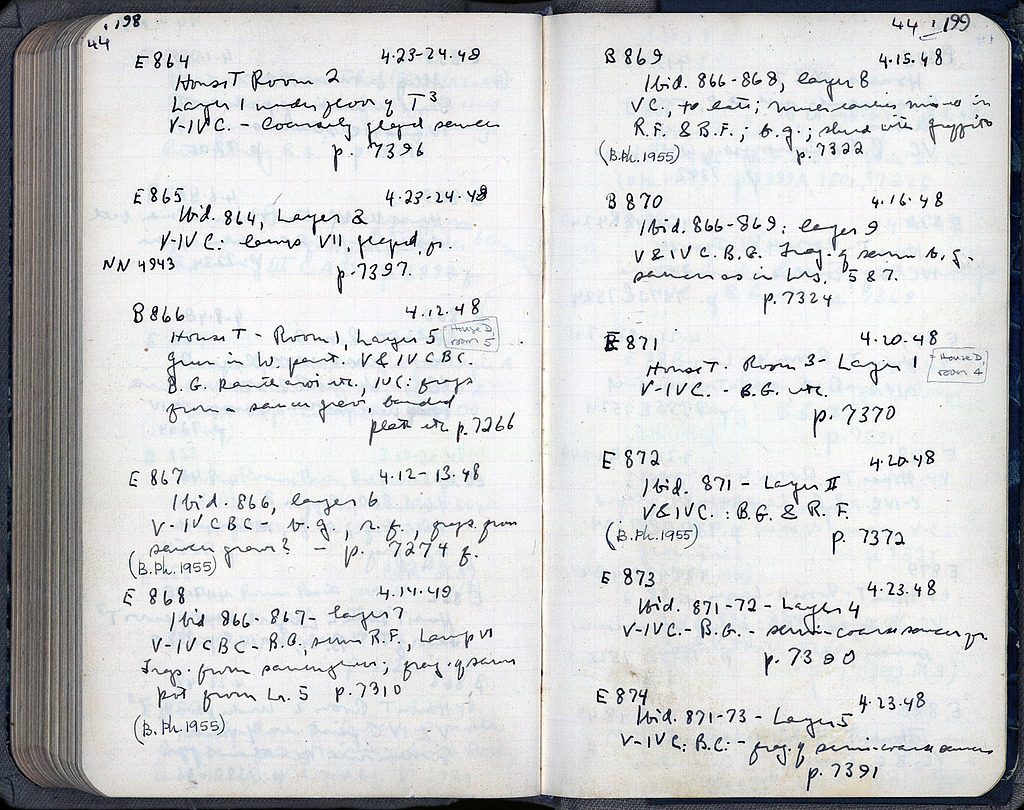 198
44
E 864 4.23-24.48
House T Room 2
Layer 1 under floor of T³
V-IV C. - Coarsely glazed saucer
p. 7396
E 865 4.23-24.48
Ibid. 864, Layer 2
V-IV C. lamp VII, glazed, fr.
NN 4943
p. 7397.
B 866 4.12.48
House T - Room 1, Layer 5
House D, room 5
in W. part. V & IV C BC.
B.G. Kantharoi etc, IV C: frags
from a saucer grave, banded
plate etc p. 7266
E 867 4.12-13.48
Ibid. 866, layer 6
V-IV C BC - b.g., r.f., frags from
saucer grave? - p. 7274 f.
(B.Ph.1955)
E 868 4.14.48
Ibid 866-867 - layer 7
V-IV C BC - B.G., some R.F., Lamp VI
Frag. from saucer grave; frag. of same
pot from Lr. 5 p. 7310
(B.Ph.1955)
44 199
B 869 4.15.48
Ibid. 866-868, layer 8
VC, to late; mixed in
R.F. & B.F.; b.g.; sherd with graffito
(B.Ph.1955) p. 7322
B 870 4.16.48
Ibid. 866-869, layer 9
V & IV C. B.G. Frag. of semi b.g.
saucer as in Lrs. 5 & 7.
p. 7324
E 871 4.20.48
House T. Room 3 - Layer 1
House D, room 4
V-IV C. - B.G. etc.
p. 7370
E 872 4.20.48
Ibid. 871 - Layer II
V & IV C. : B.G. & R.F.
(B.Ph.1955) p. 7372
E 873 4.23.48
Ibid. 871-72 - Layer 4
V-IV C. - B.G. - semi-coarse saucer fr
p. 7390
E 874 4.23.48
Ibid. 871-73 - Layer 5
V-IV C; B.G. - frag. of semi-coarse saucer
p. 7391